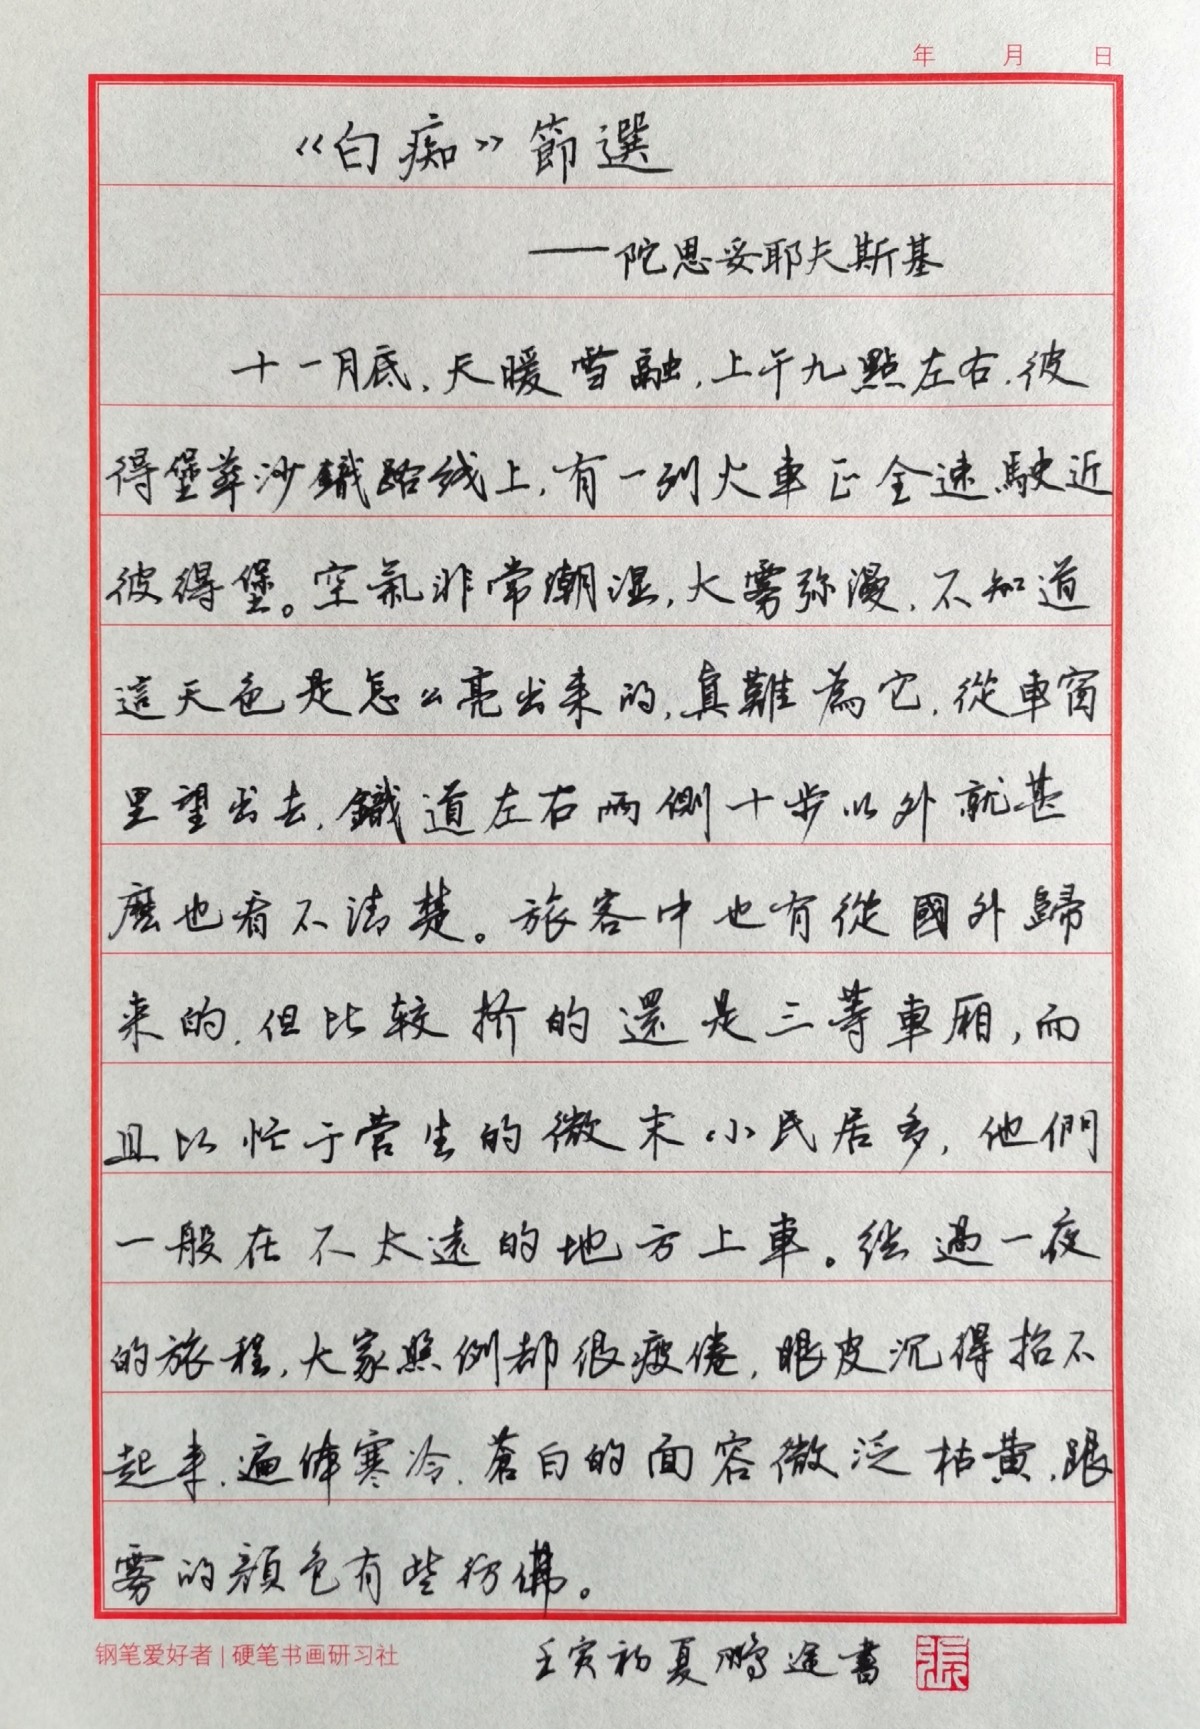 年 月 日
《白痴》節選
——陀思妥耶夫斯基
十一月底，天暖雪融，上午九點左右，彼
得堡華沙鐵路线上，有一列火車正全速駛近
彼得堡。空氣非常潮湿，大雾弥漫，不知道
這天色是怎么亮出来的，真難為它，從車窗
里望出去，鐵道左右兩側十步以外就甚
麼也看不清楚。旅客中也有從國外歸
来的，但比较挤的還是三等車厢，而
且以忙于营生的微末小民居多，他們
一般在不太遠的地方上車。经過一夜
的旅程，大家照例都很疲倦，眼皮沉得抬不
起来，遍体寒冷，蒼白的面容微泛枯黄，跟
雾的顔色有些彷彿。
钢笔爱好者|硬笔书画研习社
壬寅初夏鹏途書
张